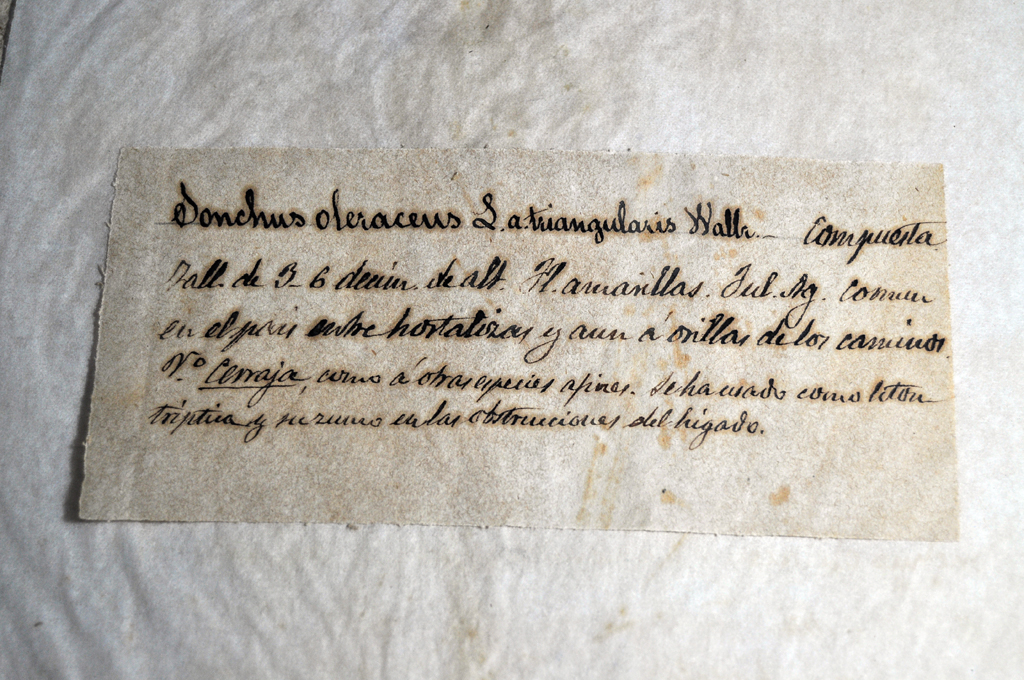 Sonchus oleraceus L. a triangularis Wallr. - Compuesta
Tall. de 3-6 decím. de alt. Fl. amarillas. Jul. Ag. Comun
en el pais entre hortalizas y aun á orillas de los caminos.
V.º Cerraja, como á otras especies afines. Se ha usado como liton
triptica y su zumo en las obstrucciones del higado.